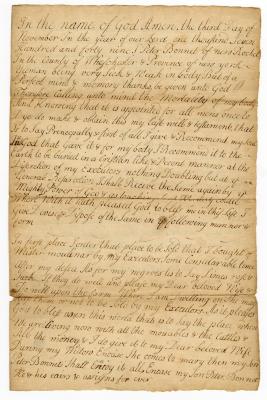 In the name of God Amen. the third Day of
November In the year of our Lord one thousand Seven
Hundred and forty nine I Peter Bonnet of new Rochel
In the County of Westchester & Province of new york
yeaman being very Sick & Weak in Body But of a
Perfect mind & memory thanks be given unto God
Therefore Calling unto mind the Mortality of my body
And Knowing that it is appointed for all mens once to
I do make & obtain this my last will & testiment, that
is to Say Principually & first of all I give & Recommend my soul
God that Gave it & for my body I Recommend it to the
Earth to be buried in a Cristian like & Decent manner at the
of my executors nothing Doubting but at the
General I Shall Receive the Same again by
Mighty Power of God & as touching
Where with it hath pleased God to bless me in this life I
give Devise & Dispose of the Same in following maner &
form
In first place I order that place to be Sold that I bought of
Mister by my Executors Some Considerable time
After my desea. As for my negros is to Say
Jack I they do well and please my Dear beloved Wife &
the farm Where I am dwelling on
them to be Sold by my Executors As it pleased
God to bless upon this world that is to Say the place where
We are living now with all the movables & the Cattles &
all the money & I do give it to my Dear beloved Wife
During my Widow Encase She comes to marry then my Son
Peter Bonnet Shall Enjoy it all Encase my Son Peter Bonnet
He & his eairs & asigns for ever